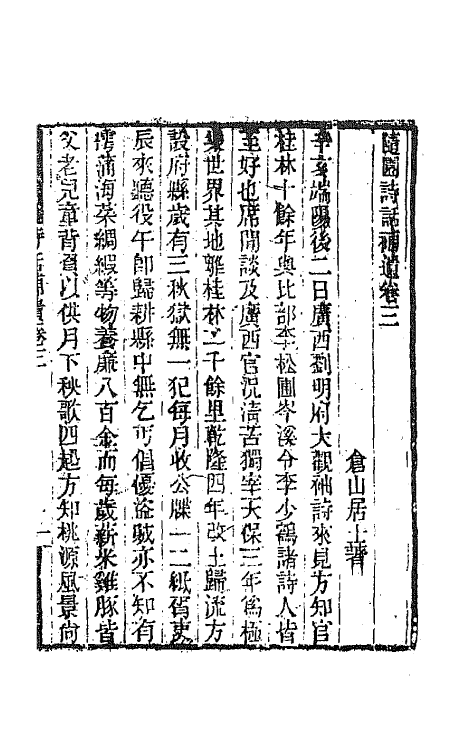 隨園詩話補遺卷三
倉山居士著
辛亥端陽後二日廣西劉明府大觀袖詩來見方知官
桂林十餘年與比部李松圃岑溪令李少鶴諸詩人皆
至好也席間談及廣西官況清苦獨宰天保三年爲極
樂世界其地離桂林二千餘里乾隆四年改土歸流方
設府縣歲有三秋獄無一犯每月收公牒一二紙胥吏
辰來聽役午卽歸耕縣中無乞丐倡優盜賊亦不知有
樗蒲海菜綢緞等物養廉八百金而每歲薪米雞豚皆
父老兒童背負以供月下秧歌四起方知桃源風景尚